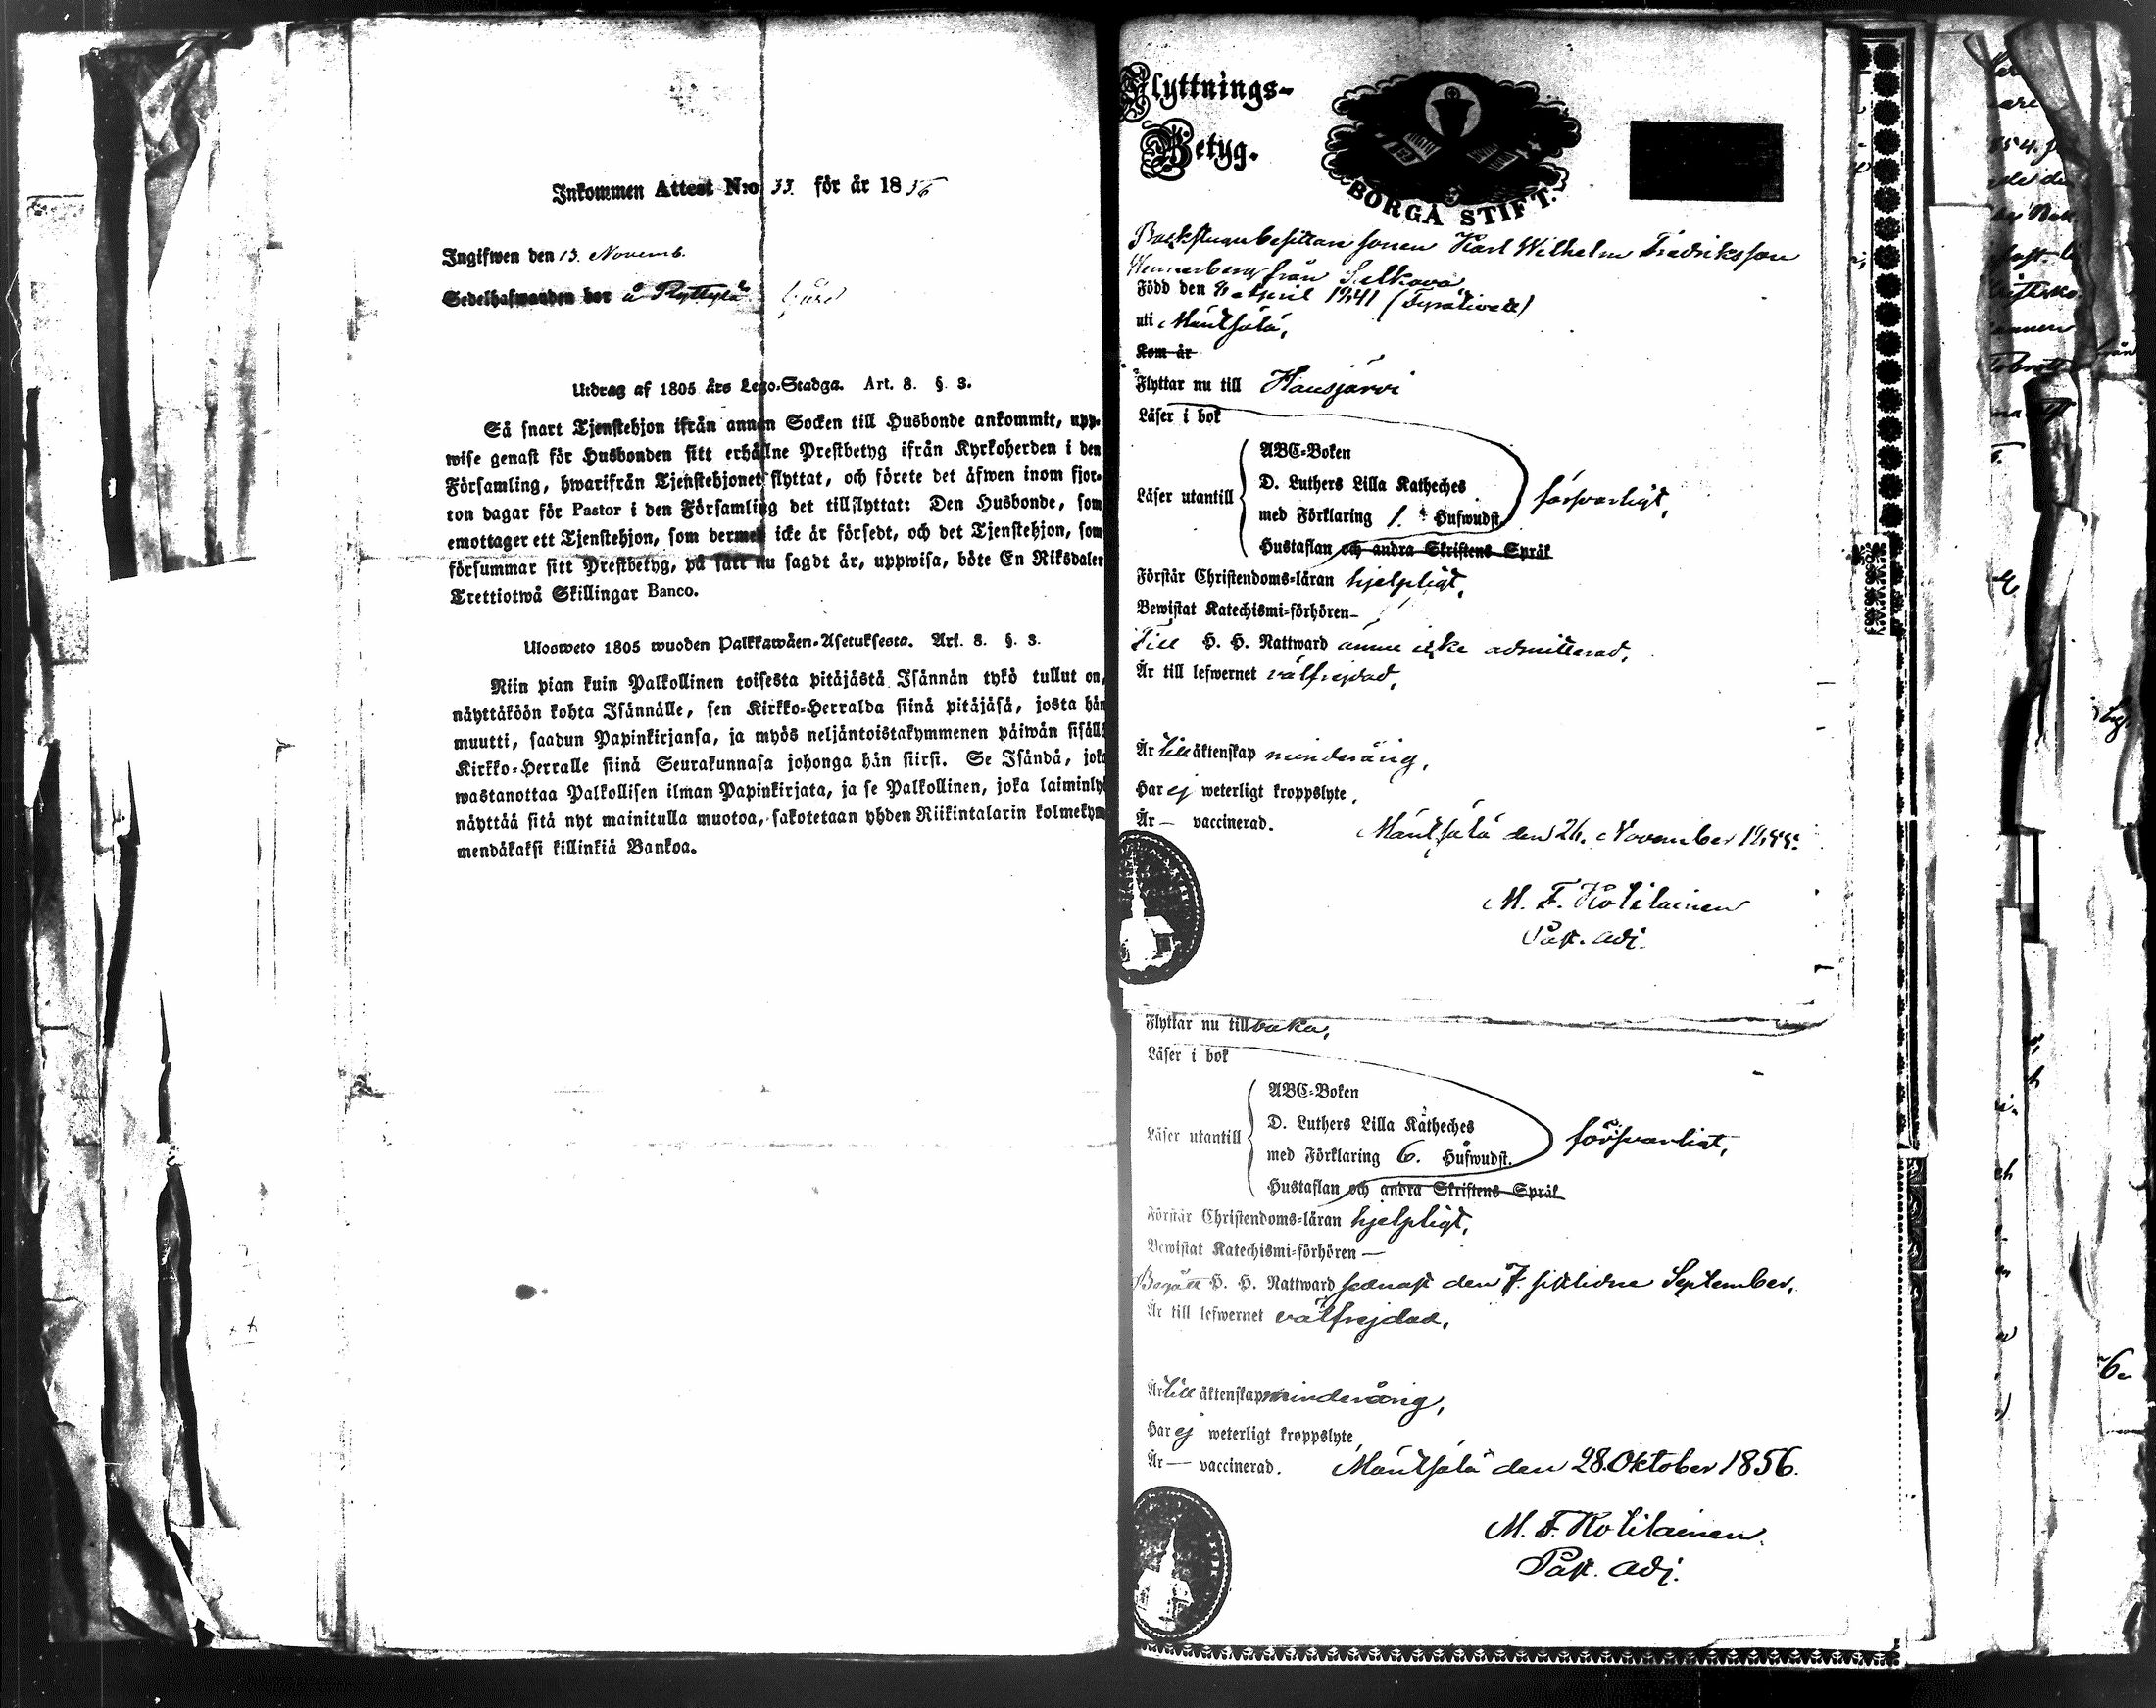 Inkommen Attest N:o 33. för år 1856
Ingifwen den 13. Novemb.
Sedelhafwanden bor å Ryttylä gård
Utdrag af 1805 års Lego-Stadga. Art. 8. §. 3.
Så snart Tjenstehjon ifrån annan Socken till Husbonde ankommit, upp-
wise genast för Husbonden sitt erhållne Prestbetyg ifrån Kyrkoherden i den
Församling, hwarifrån Tjenstehjonet flyttat, och förete det äfwen inom fjor-
ton dagar för Pastor i den Församling det tillflyttat: Den Husbonde, som
emottager ett Tjenstehjon, som dermed icke är försedt, och det Tjenstehjon, som
försummar sitt Prestbetyg, på sätt nu sagdt är, uppwisa, böte En Riksdaler
Trettiotwå Skillingar Banco.
Ulosweto 1805 wuoden Palkkawäen-Asetuksesta. Art. 8. §. 3.
Niin pian kuin Palkollinen toisesta pitäjästä Isännän tykö tullut on,
näyttäköön kohta Isännälle, sen Kirkko-Herralda siinä pitäjäsä, josta hän
muutti, saadun Papinkirjansa, ja myös neljäntoistakymmenen päiwän sisällä
Kirkko-Herralle siinä Seurakunnasa johonga hän siirsi. Se Isändä, joka
wastanottaa Palkollisen ilman Papinkirjata, ja se Palkollinen, joka laiminlyö
näyttää sitä nyt mainitulla muotoa, sakotetaan yhden Riikintalarin kolmekym-
mendäkaksi killinkiä Bankoa.
Flyttnings-
Betyg.
BORGÅ STIFT.
Backstugubesittare sonen Karl Wilhelm Fredriksson
Wennerberg från Sälkova
Född den 8 April 1841
uti Mäntsälä,
Kom år
Flyttar nu till Hausjärvi
Läser i bok
ABC-Boken
Läser utantill
D. Luthers Lilla Katheches
med Förklaring 1. Hufwudst.
försvarligt,
Hustaflan och andra Skriftens Språk
Förstår Christendoms-läran hjelpligt,
Bewistat Katechismi-förhören—
Till H. H. Nattward ännu icke admitterad,
Är till lefwernet välfrejdad,
Är till äktenskap minderårig,
Har ej weterligt kroppslyte,
Är — vaccinerad.
Mäntsälä den 26. November 1855.
M. F. Kotilainen
Past. adj.
Flyttar nu tillbaka,
Läser i bok
ABC-Boken
Läser utantill
D. Luthers Lilla Katheches
med Förklaring 6. Hufwudst.
försvarligt,
Hustaflan och andra Skriftens Språk
Förstår Christendoms-läran hjelpligt,
Bewistat Katechismi-förhören —
Begått H. H. Nattward senast den 7. sistlidne September,
Är till lefwernet välfrejdad,
Är till äktenskap minderårig,
Har ej weterligt kroppslyte
Är — vaccinerad.
Mäntsälä den 28. Oktober 1856.
M. F. Kotilainen.
Past. adj.